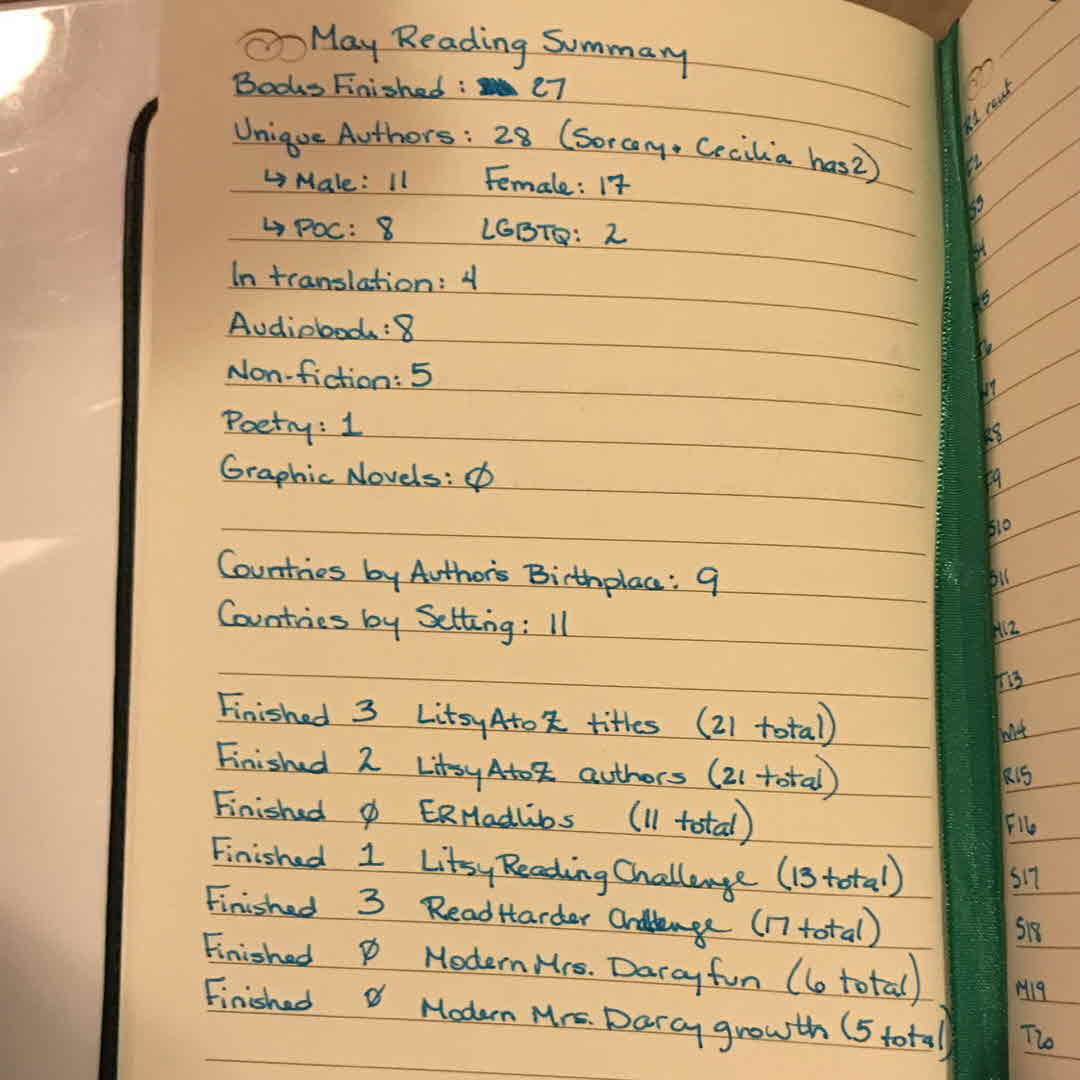 May Reading Summary
Books Finished: 27
Unique Authors: 28 (Sorcery + Cecilia has 2)
↳ Male: 11 Female: 17
↳ POC: 8 LGBTQ: 2
In translation: 4
Audiobook: 8
Non-fiction: 5
Poetry: 1
Graphic Novels: Ø
Countries by Author's Birthplace: 9
Countries by Setting: 11
Finished 3 LitsyAtoZ titles (21 total)
Finished 2 LitsyAtoZ authors (21 total)
Finished Ø ERMadlibs (11 total)
Finished 1 LitsyReadingChallenge (13 total)
Finished 3 ReadHarder Challenge (17 total)
Finished Ø ModernMrs. Darcy fun (6 total)
Finished Ø Modern Mrs. Darcy growth (5 total)
S10
M12
T13
R15
F16
S17
S18
M19
T20